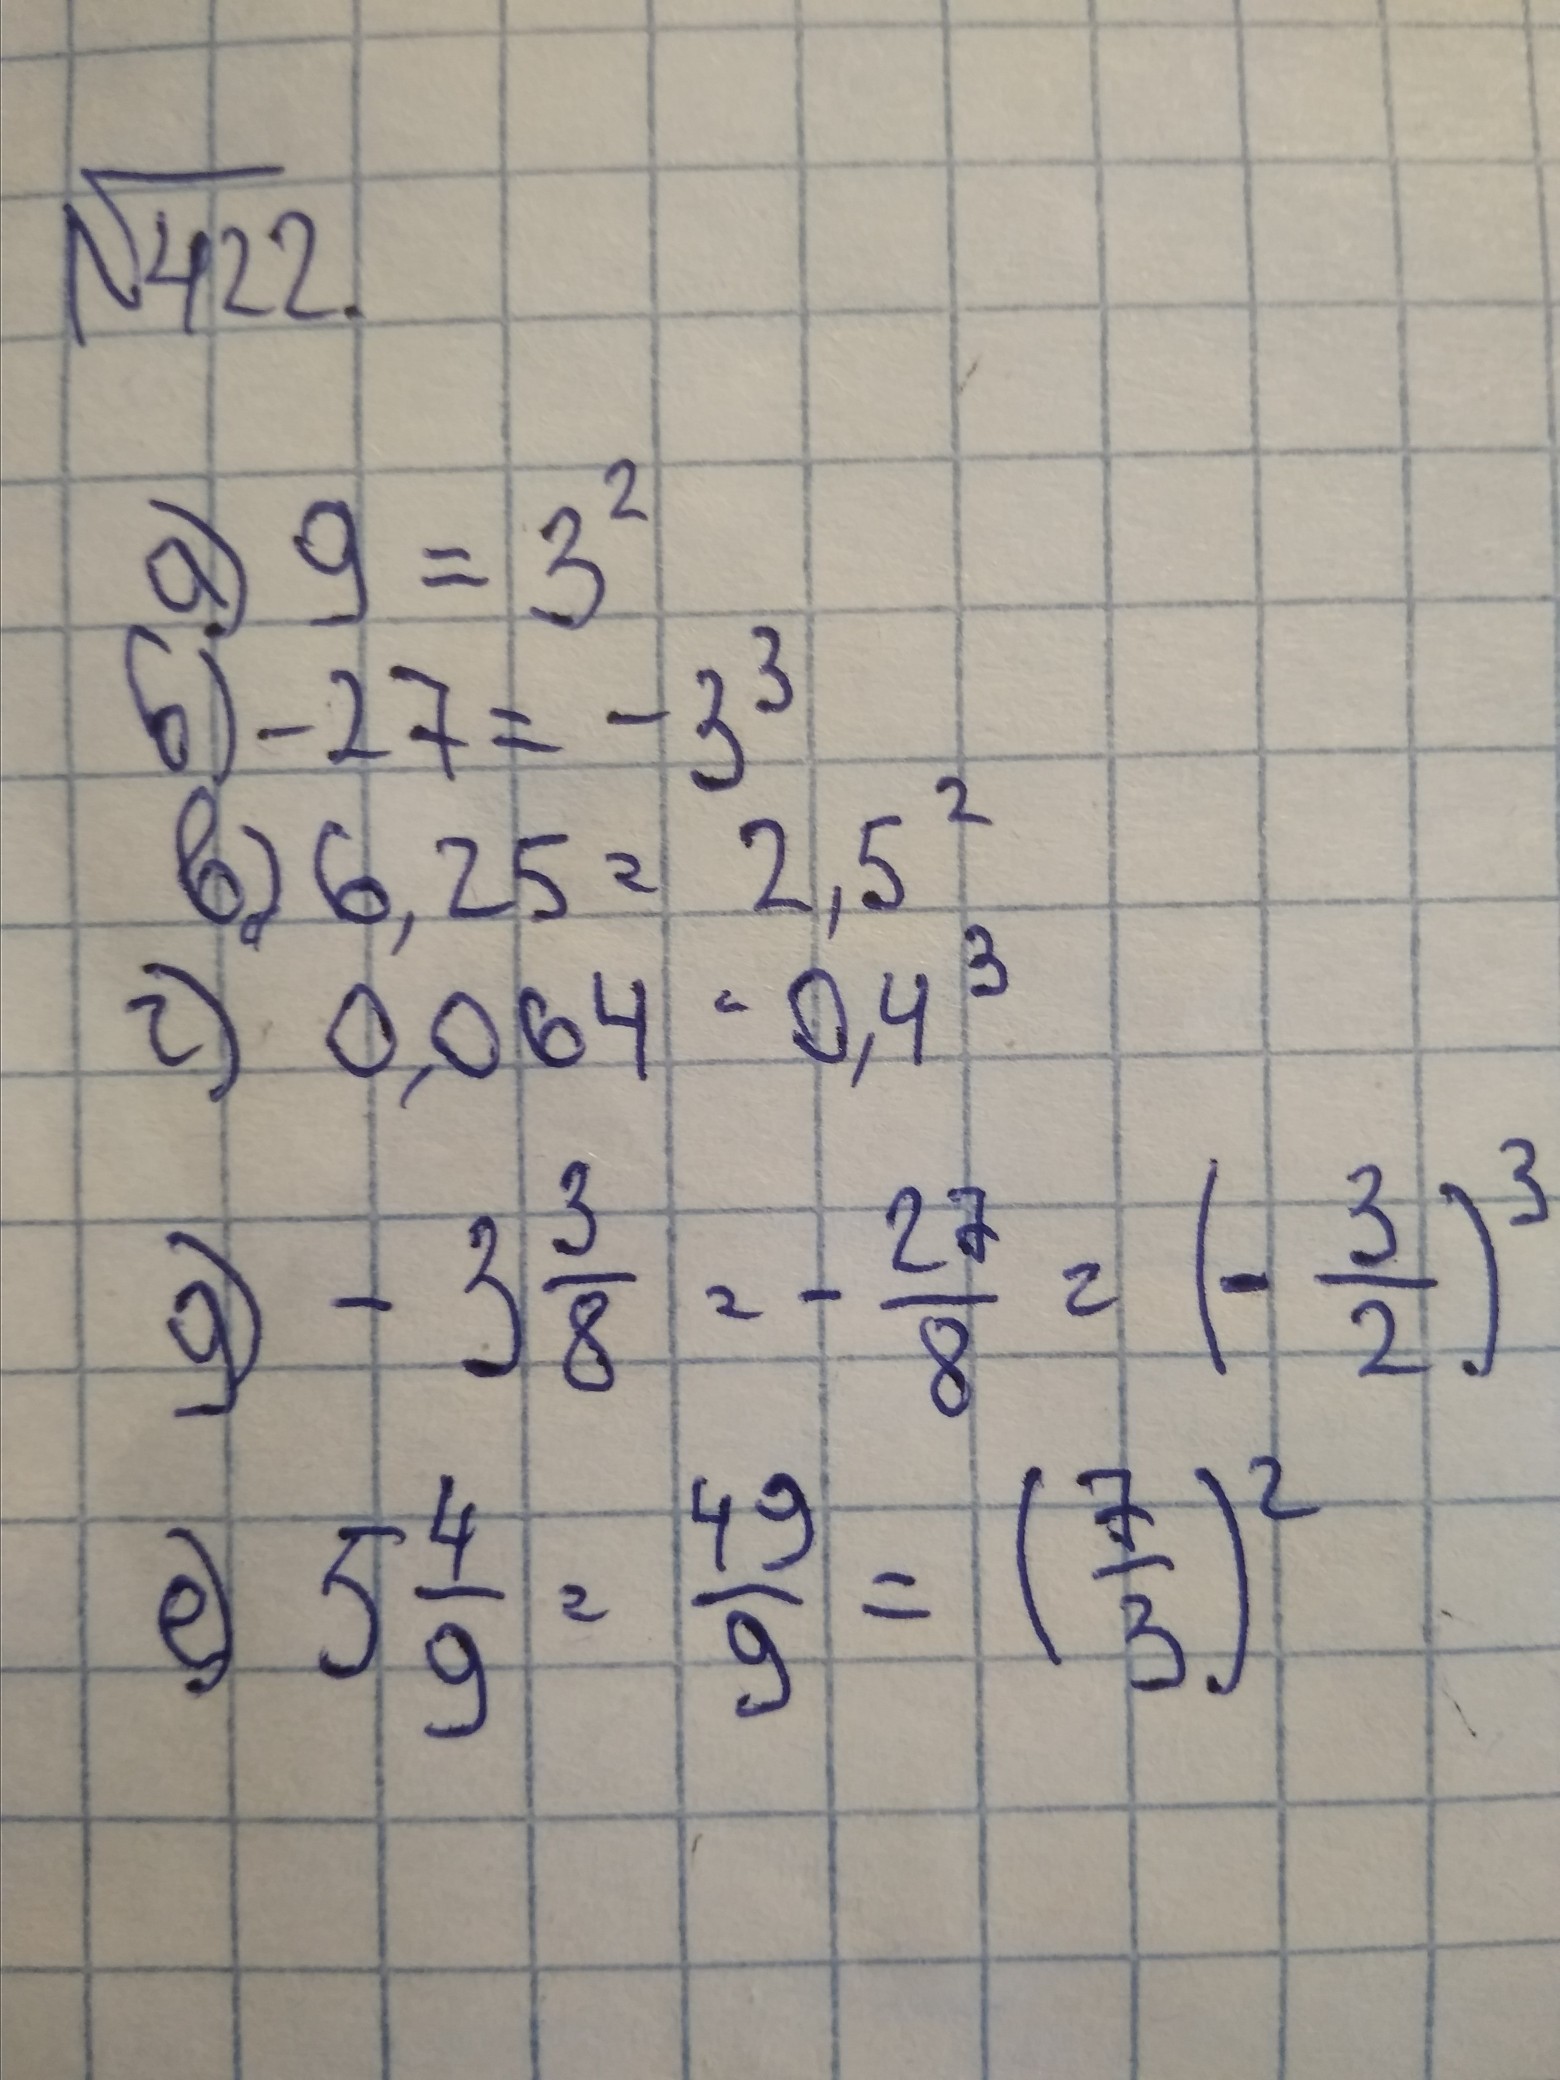 №422.
а) 9 = 3²
б) -27 = -3³
в) 6,25 = 2,5²
г) 0,064 = 0,4³
д) - 3 3/8 = - 27/8 = (- 3/2)³
е) 5 4/9 = 49/9 = (7/3)²